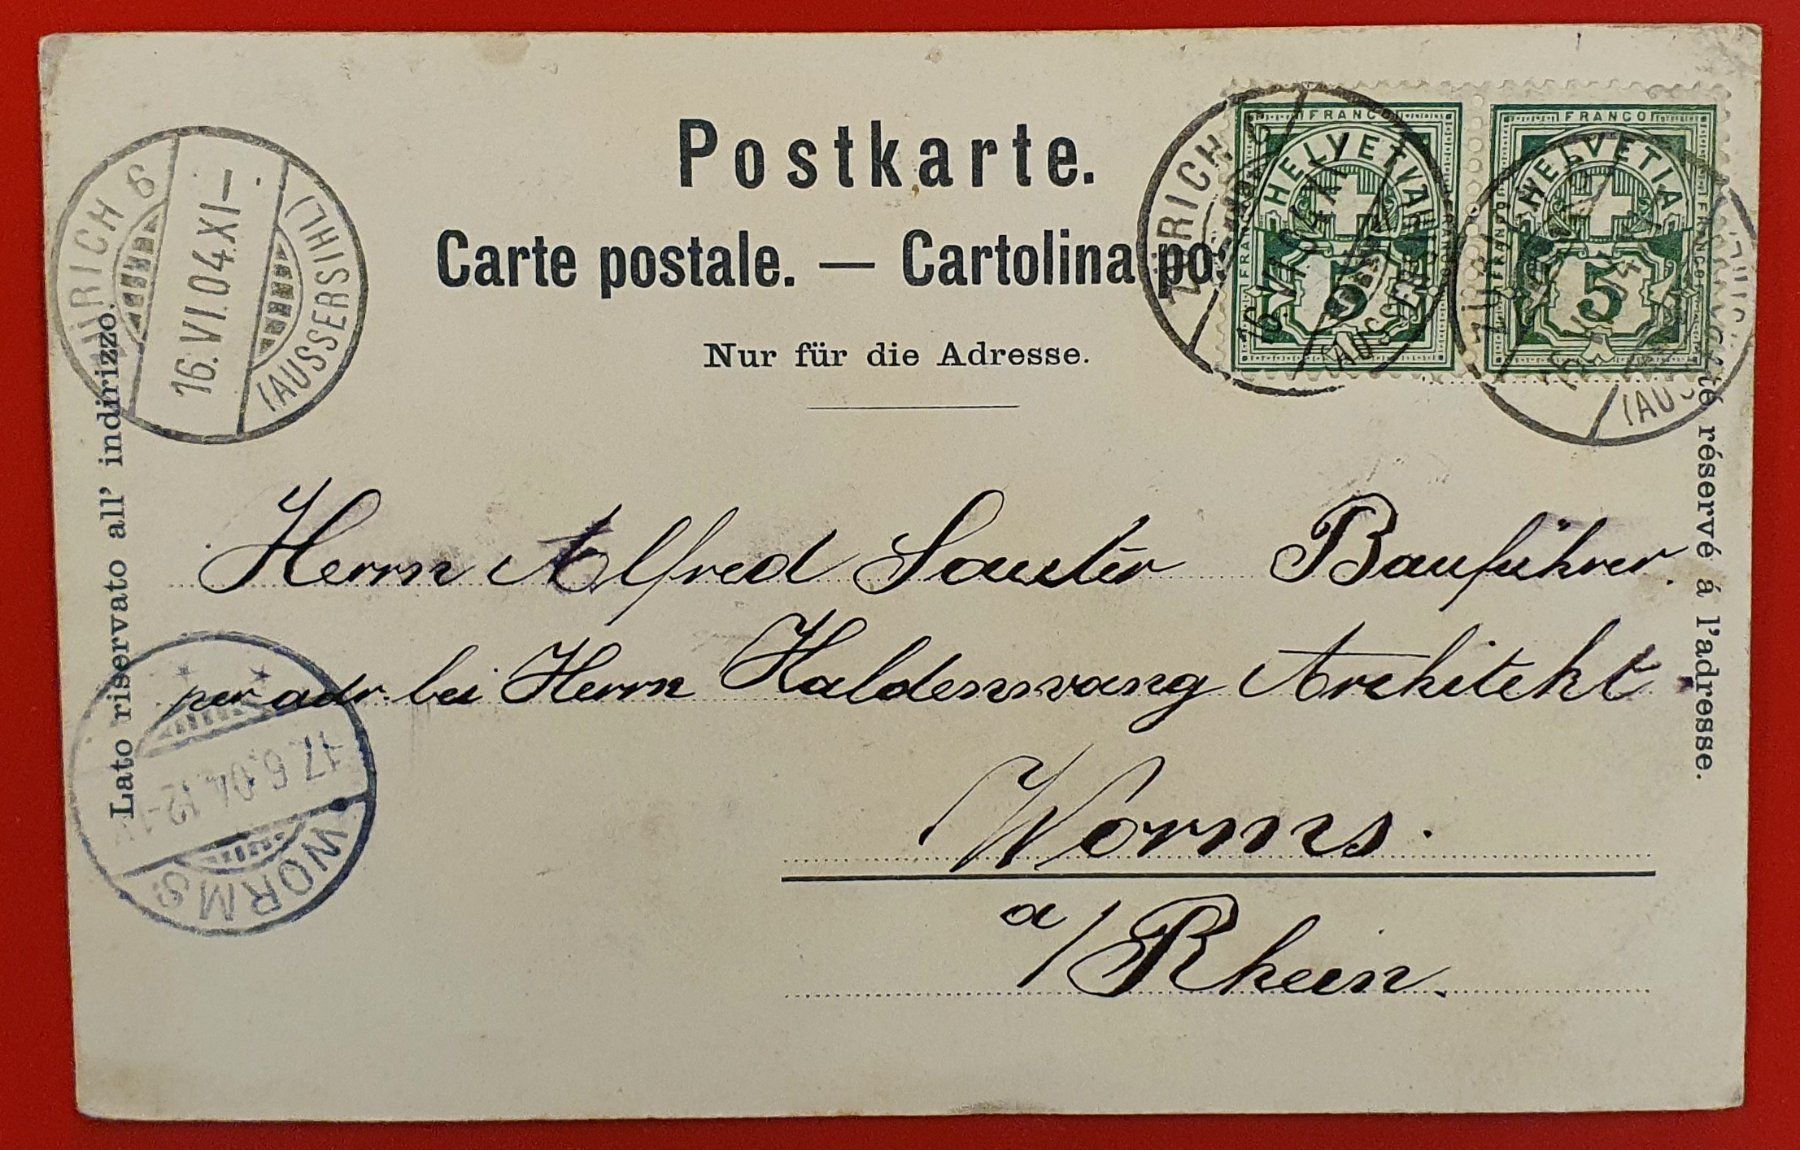 Postkarte.
Carte postale. — Cartolina po
Nur für die Adresse.
ZÜRICH 6
16.VI.04.XI–
(AUSSERSIHL)
ZÜRICH 6
16.VI.04.XI
FRANCO
HELVETIA
5
FRANCO
HELVETIA
5
Lato riservato all' indirizzo.
té réservé á l'adresse.
Herrn Alfred Sauter Bauführer.
per adr. bei Herrn Haldenwang Architekt
Worms.
a/Rhein.
17.6.04.12-1
WORMS